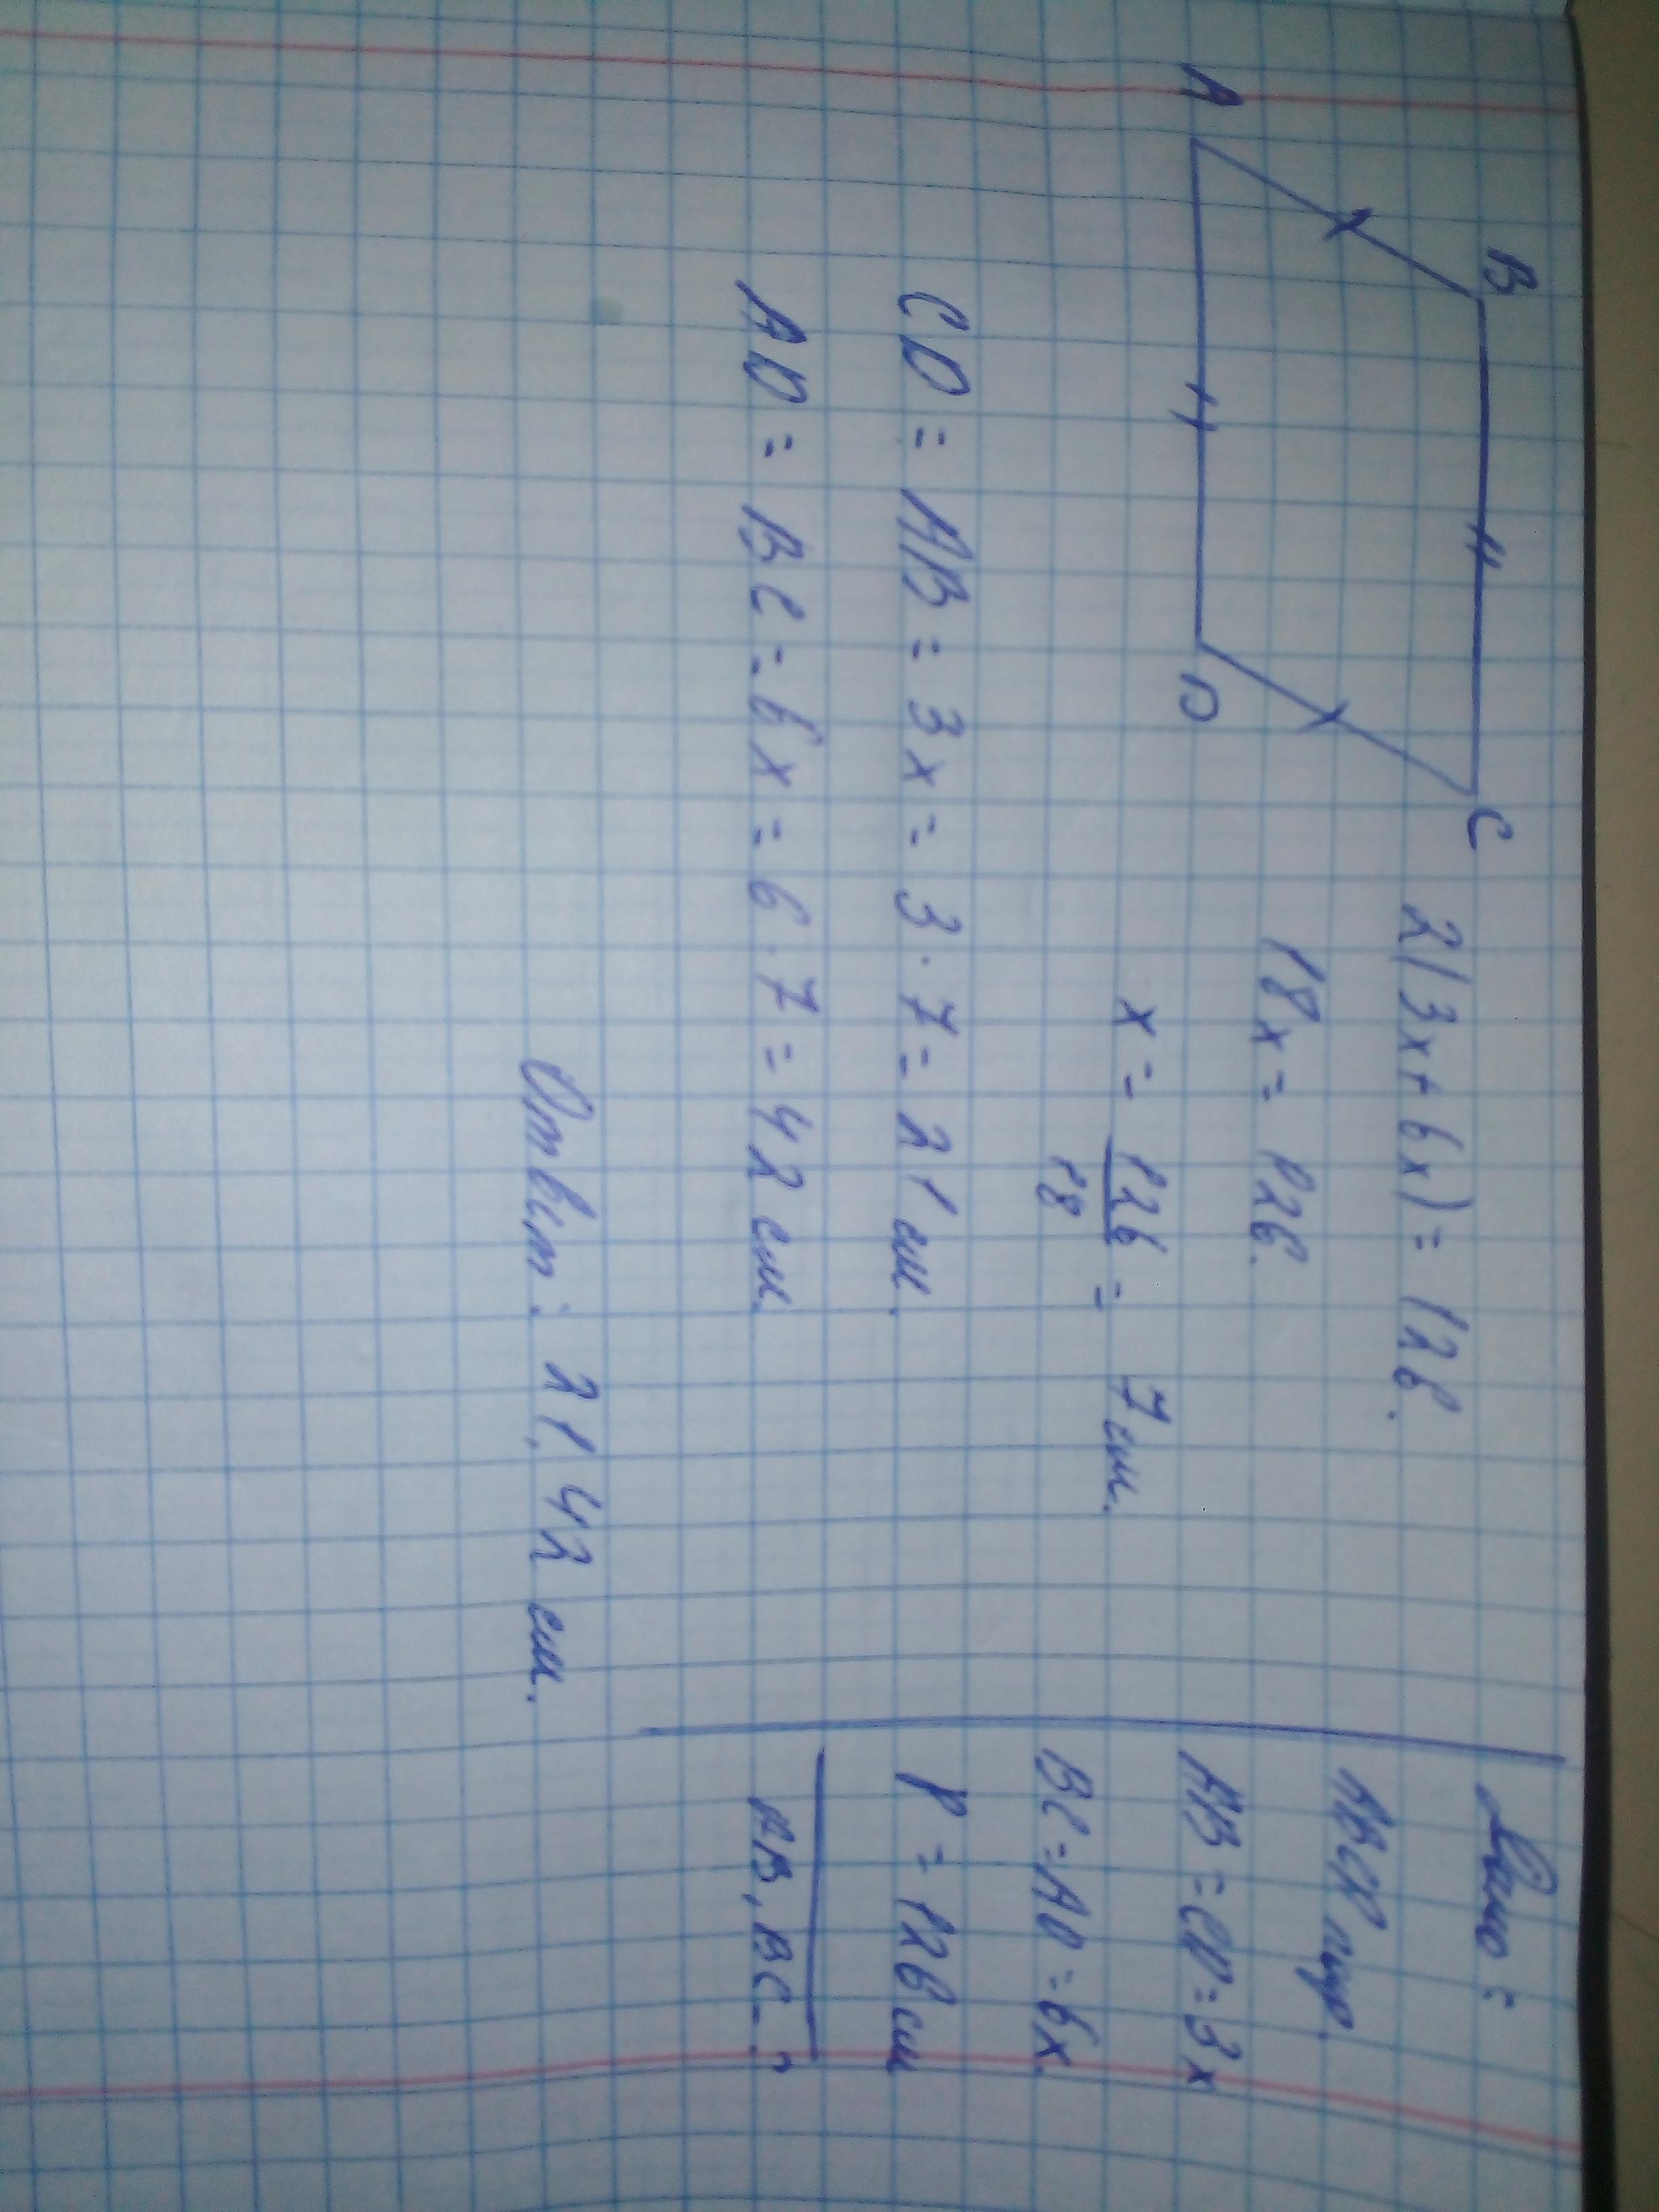 B
C
A
D
2(3x+6x)=126.
18x=126.
x=126/18=7 см.
CD=AB=3x=3·7=21 см.
AD=BC=6x=6·7=42 см.
Ответ: 21, 42 см.
Дано:
AB=CD=3x
BC=AD=6x.
P=126 см
AB, BC-?